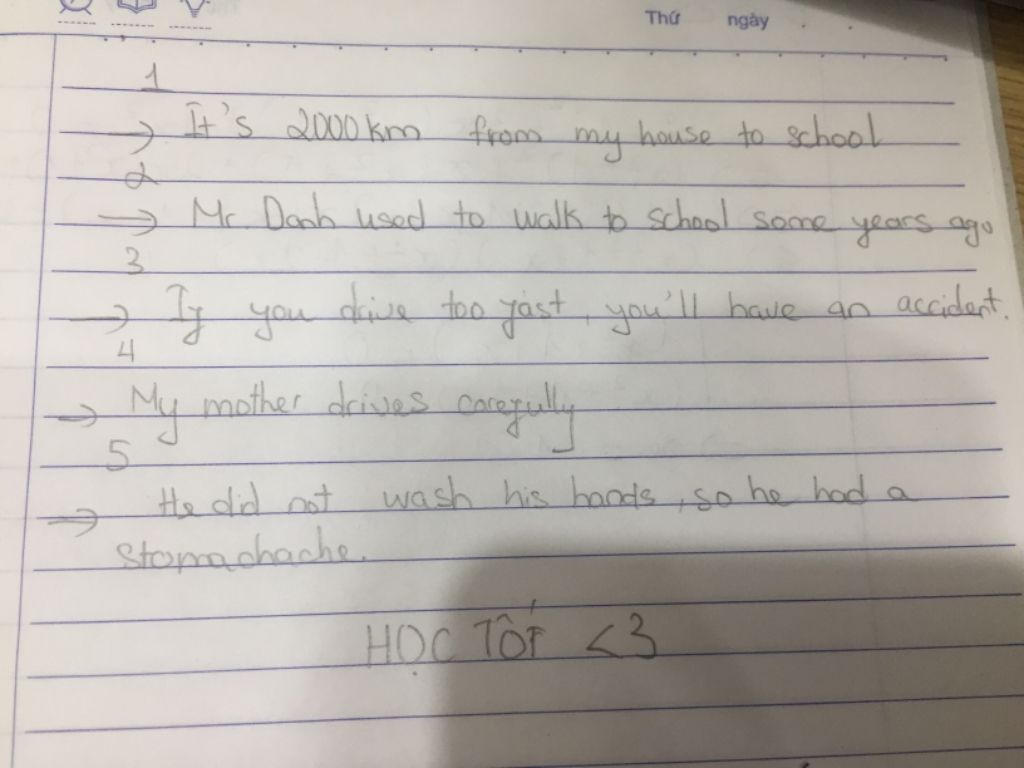 Thứ ngày
1
→ It's 2000km from my house to school
2
→ Mr. Danh used to walk to school some years ago
3
→ If you drive too fast, you'll have an accident.
4
→ My mother drives carefully
5
→ He did not wash his hands, so he had a
stomachache.
HỌC TỐT <3